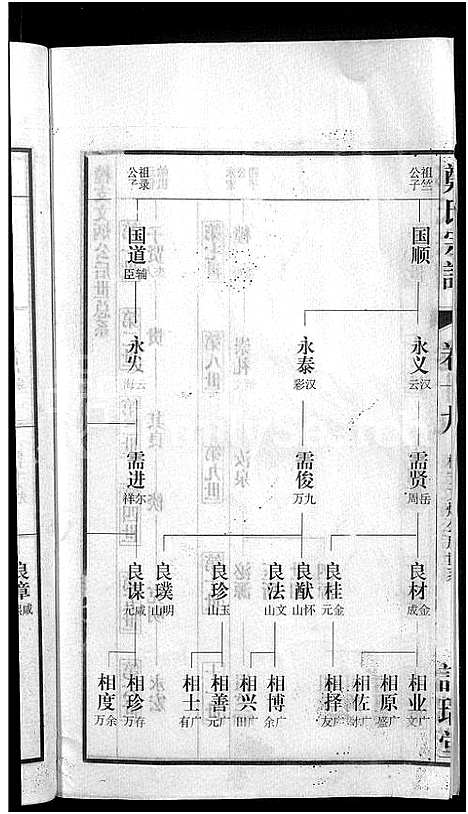 祖竺公子
祖录公子
国顺
国道 辅臣
永义 汉云
永泰 汉彩
永发 云海
需贤 岳周
需俊 九万
需进 尔祥
良材 金成
良桂 金元
良猷 怀山
良法 文山
良珍 玉山
良璞 明山
良谋 咸元
相业 广文
相原 广盛
相佐 广才
相择 广友
相博 广余
相兴 广田
相善 广元
相士 广有
相珍 万存
相度 万余
郑氏宗谱
卷十九
诗理堂
良璋